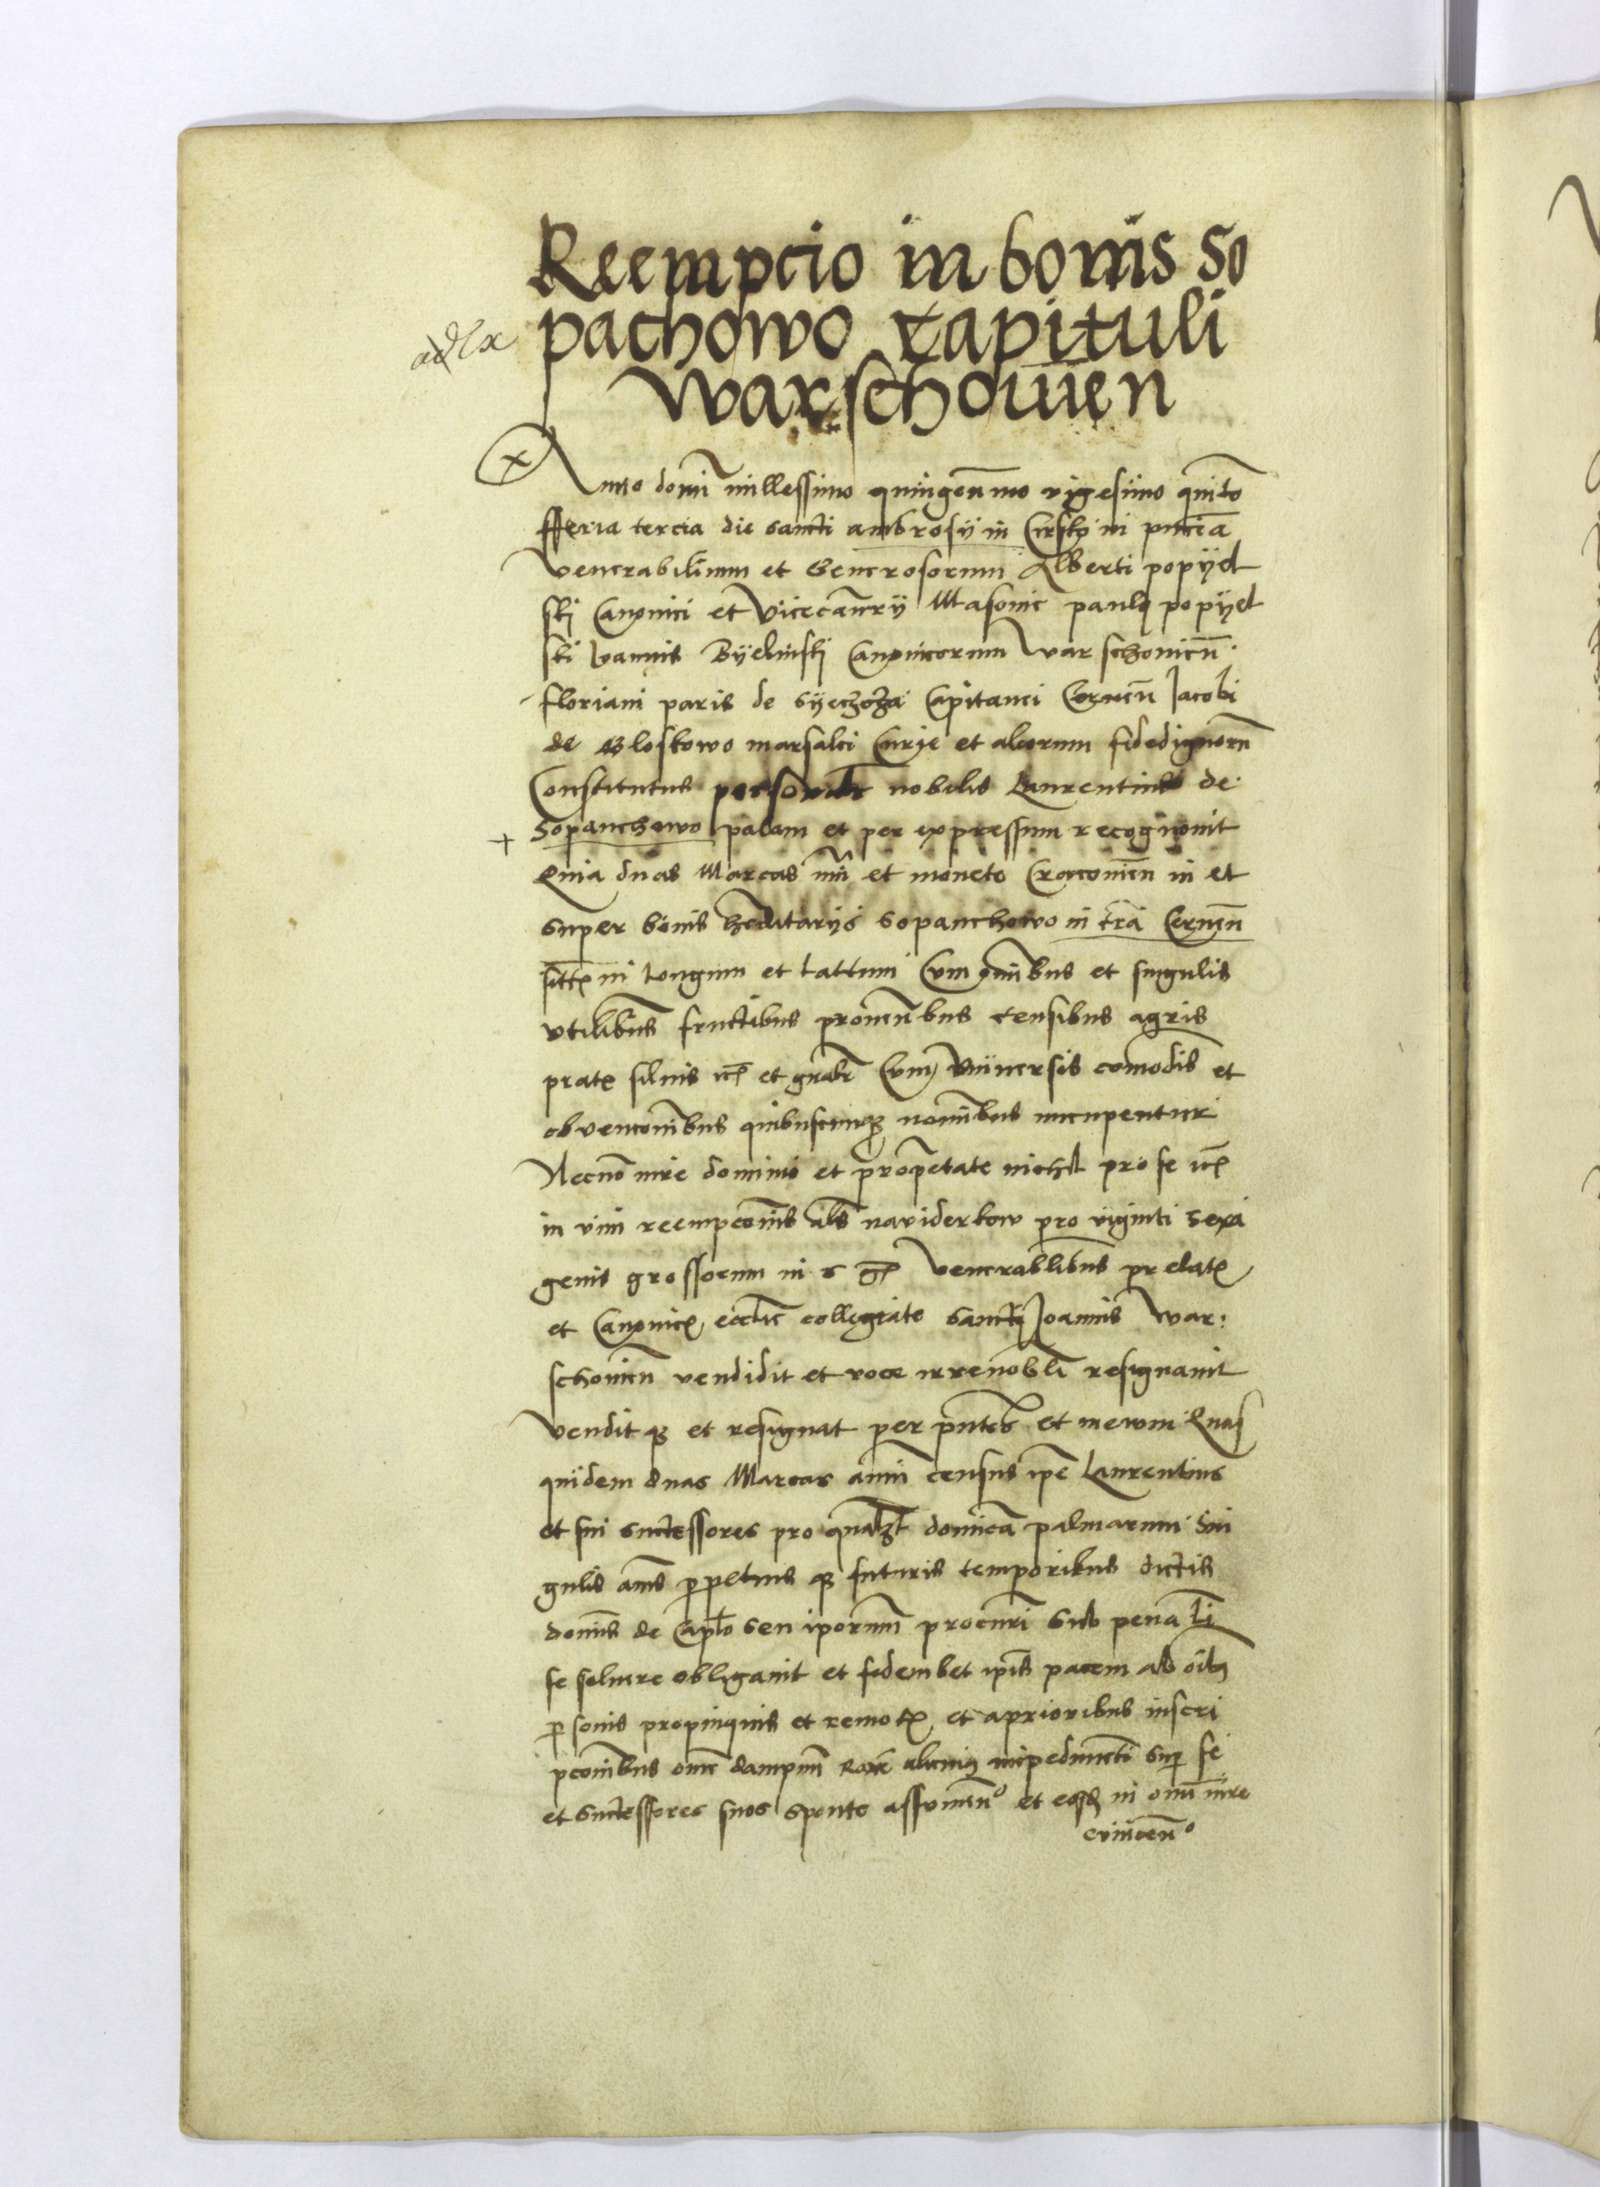 Reempcio in bonis So
pachowo Capituli
Warschouien
Anno domī millessimo quingenmo vigesimo quīto
fferia tercia die sancti ambrosij in Cirsko in pntīa
Venerabilium et Generosorum Alberti popyel
ski Canonici et Vicecancrij Masovie pauli popyel
ski Joannis Byelinski Canonicorum Warschovien̄
floriani paris de Capitanei Cernen̄ Jacobi
de Gloskowo marsalci Curie et aliorum fidedignorū
Constitutus personalr nobilis Laurentius de
Sopanchowo palam et per expressum recognovit
Quia duas Marcas et monete Cracovien̄ in et
super bonis hereditarijs Sopanchowo in tr̄a Cernen̄
in longum et lattum Cum omībus et singulis
vtilibus fructibus provenībus censibus agris
prat silvis et gnalr Cum vniuersis comodis et
obvencionibus quibuscunqȝ nominibus nuncupentur
Necnō iure dominio et proprietate nichil pro se
in vim reempcōnis als naviderkow pro viginti sexa
genis grossorum in Venerabilibus prelat
et Canonic eccl̄ie collegiate Sancti Joannis War:
schovien̄ vendidit et voce irrevobli resignavit
Vendit qȝ et resignat per pn̄tes et in evum Quas
quidem duas Marcas annui census ipe Laurentius
et sui successores pro qualȝt domīca palmarum sin
gulis annis perpetuis qȝ futuris temporibus dictis
domīs de Caplo seu iporum procuri sub pena
se solvere obligavit et ipīs pacem ab oībȝ
personis propinquis et remot et a prioribus inscri
pcōnibus omē dampnū alicuiȝ impedimēti sup se
et successores suos sponte assumen̄º et in omī iure
evincen̄º